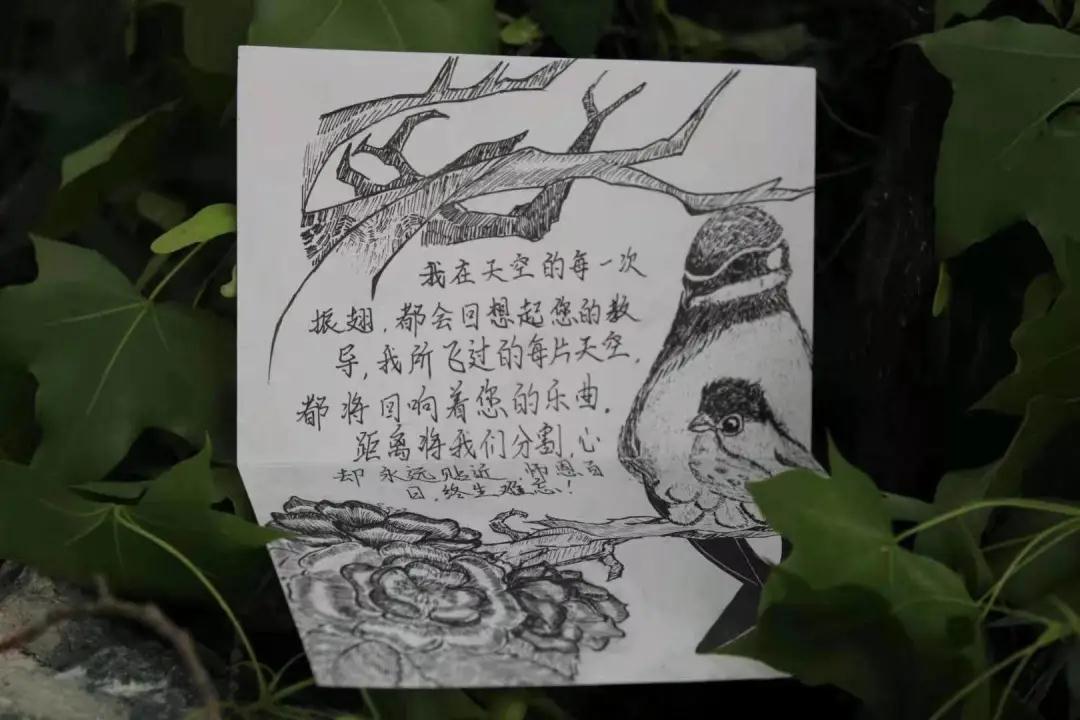 我在天空的每一次
振翅,都会回想起您的教
导,我所飞过的每片天空,
都将回响着您的乐曲。
距离将我们分割,心
却永远贴近,师恩百
日,终生难忘!